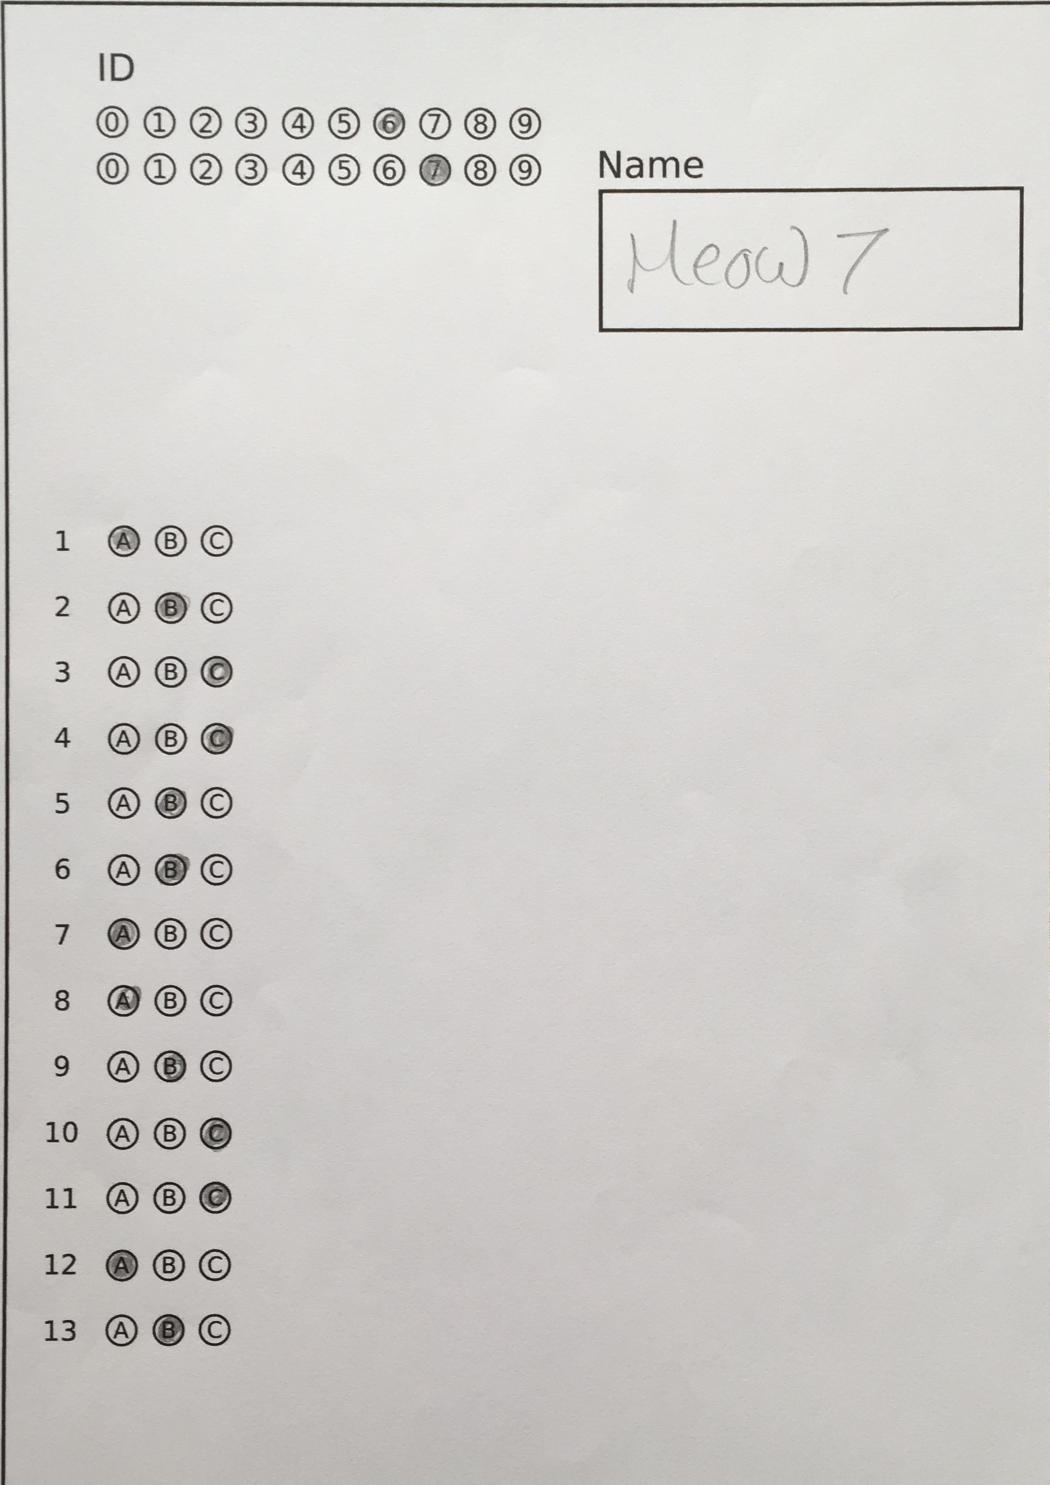 ID
0 1 2 3 4 5 6 7 8 9
0 1 2 3 4 5 6 7 8 9
Name
Meow 7
1 A B C
2 A B C
3 A B C
4 A B C
5 A B C
6 A B C
7 A B C
8 A B C
9 A B C
10 A B C
11 A B C
12 A B C
13 A B C